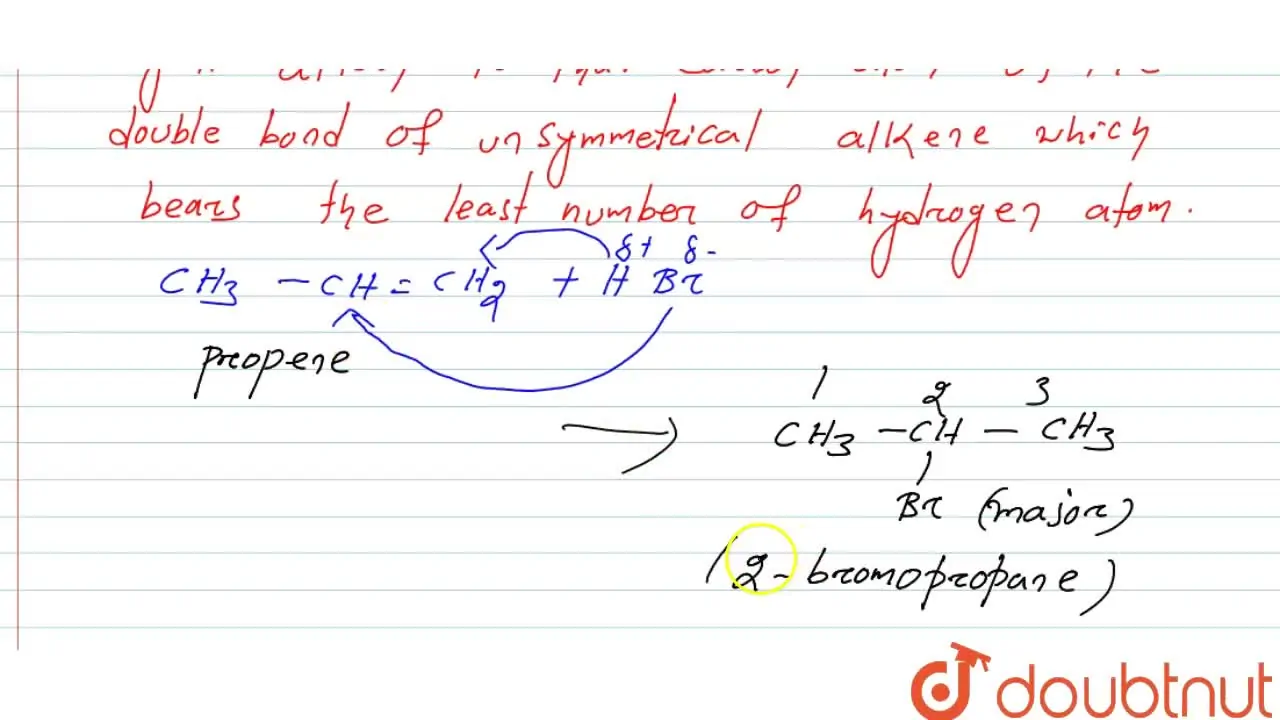 double bond of unsymmetrical alkene which
bears the least number of hydrogen atom.
δ+ δ-
CH3 - CH = CH2 + H Br
propene
1 2 3
→ CH3 - CH - CH3
Br (major)
(2-bromopropane)
doubtnut